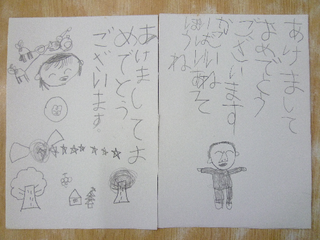 あけまして
おめでとう
ございます
ぼうね
あけましてお
めでとう
ございます